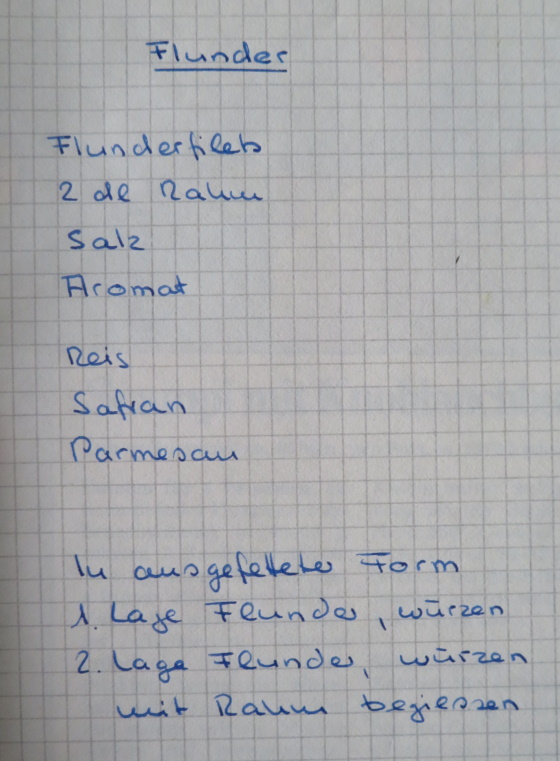 Flunder
Flunderfilets
2 dl Rahm
Salz
Aromat
Reis
Safran
Parmesan
In ausgefetteter Form
1. Lage Flunder, würzen
2. Lage Flunder, würzen
mit Rahm begiessen